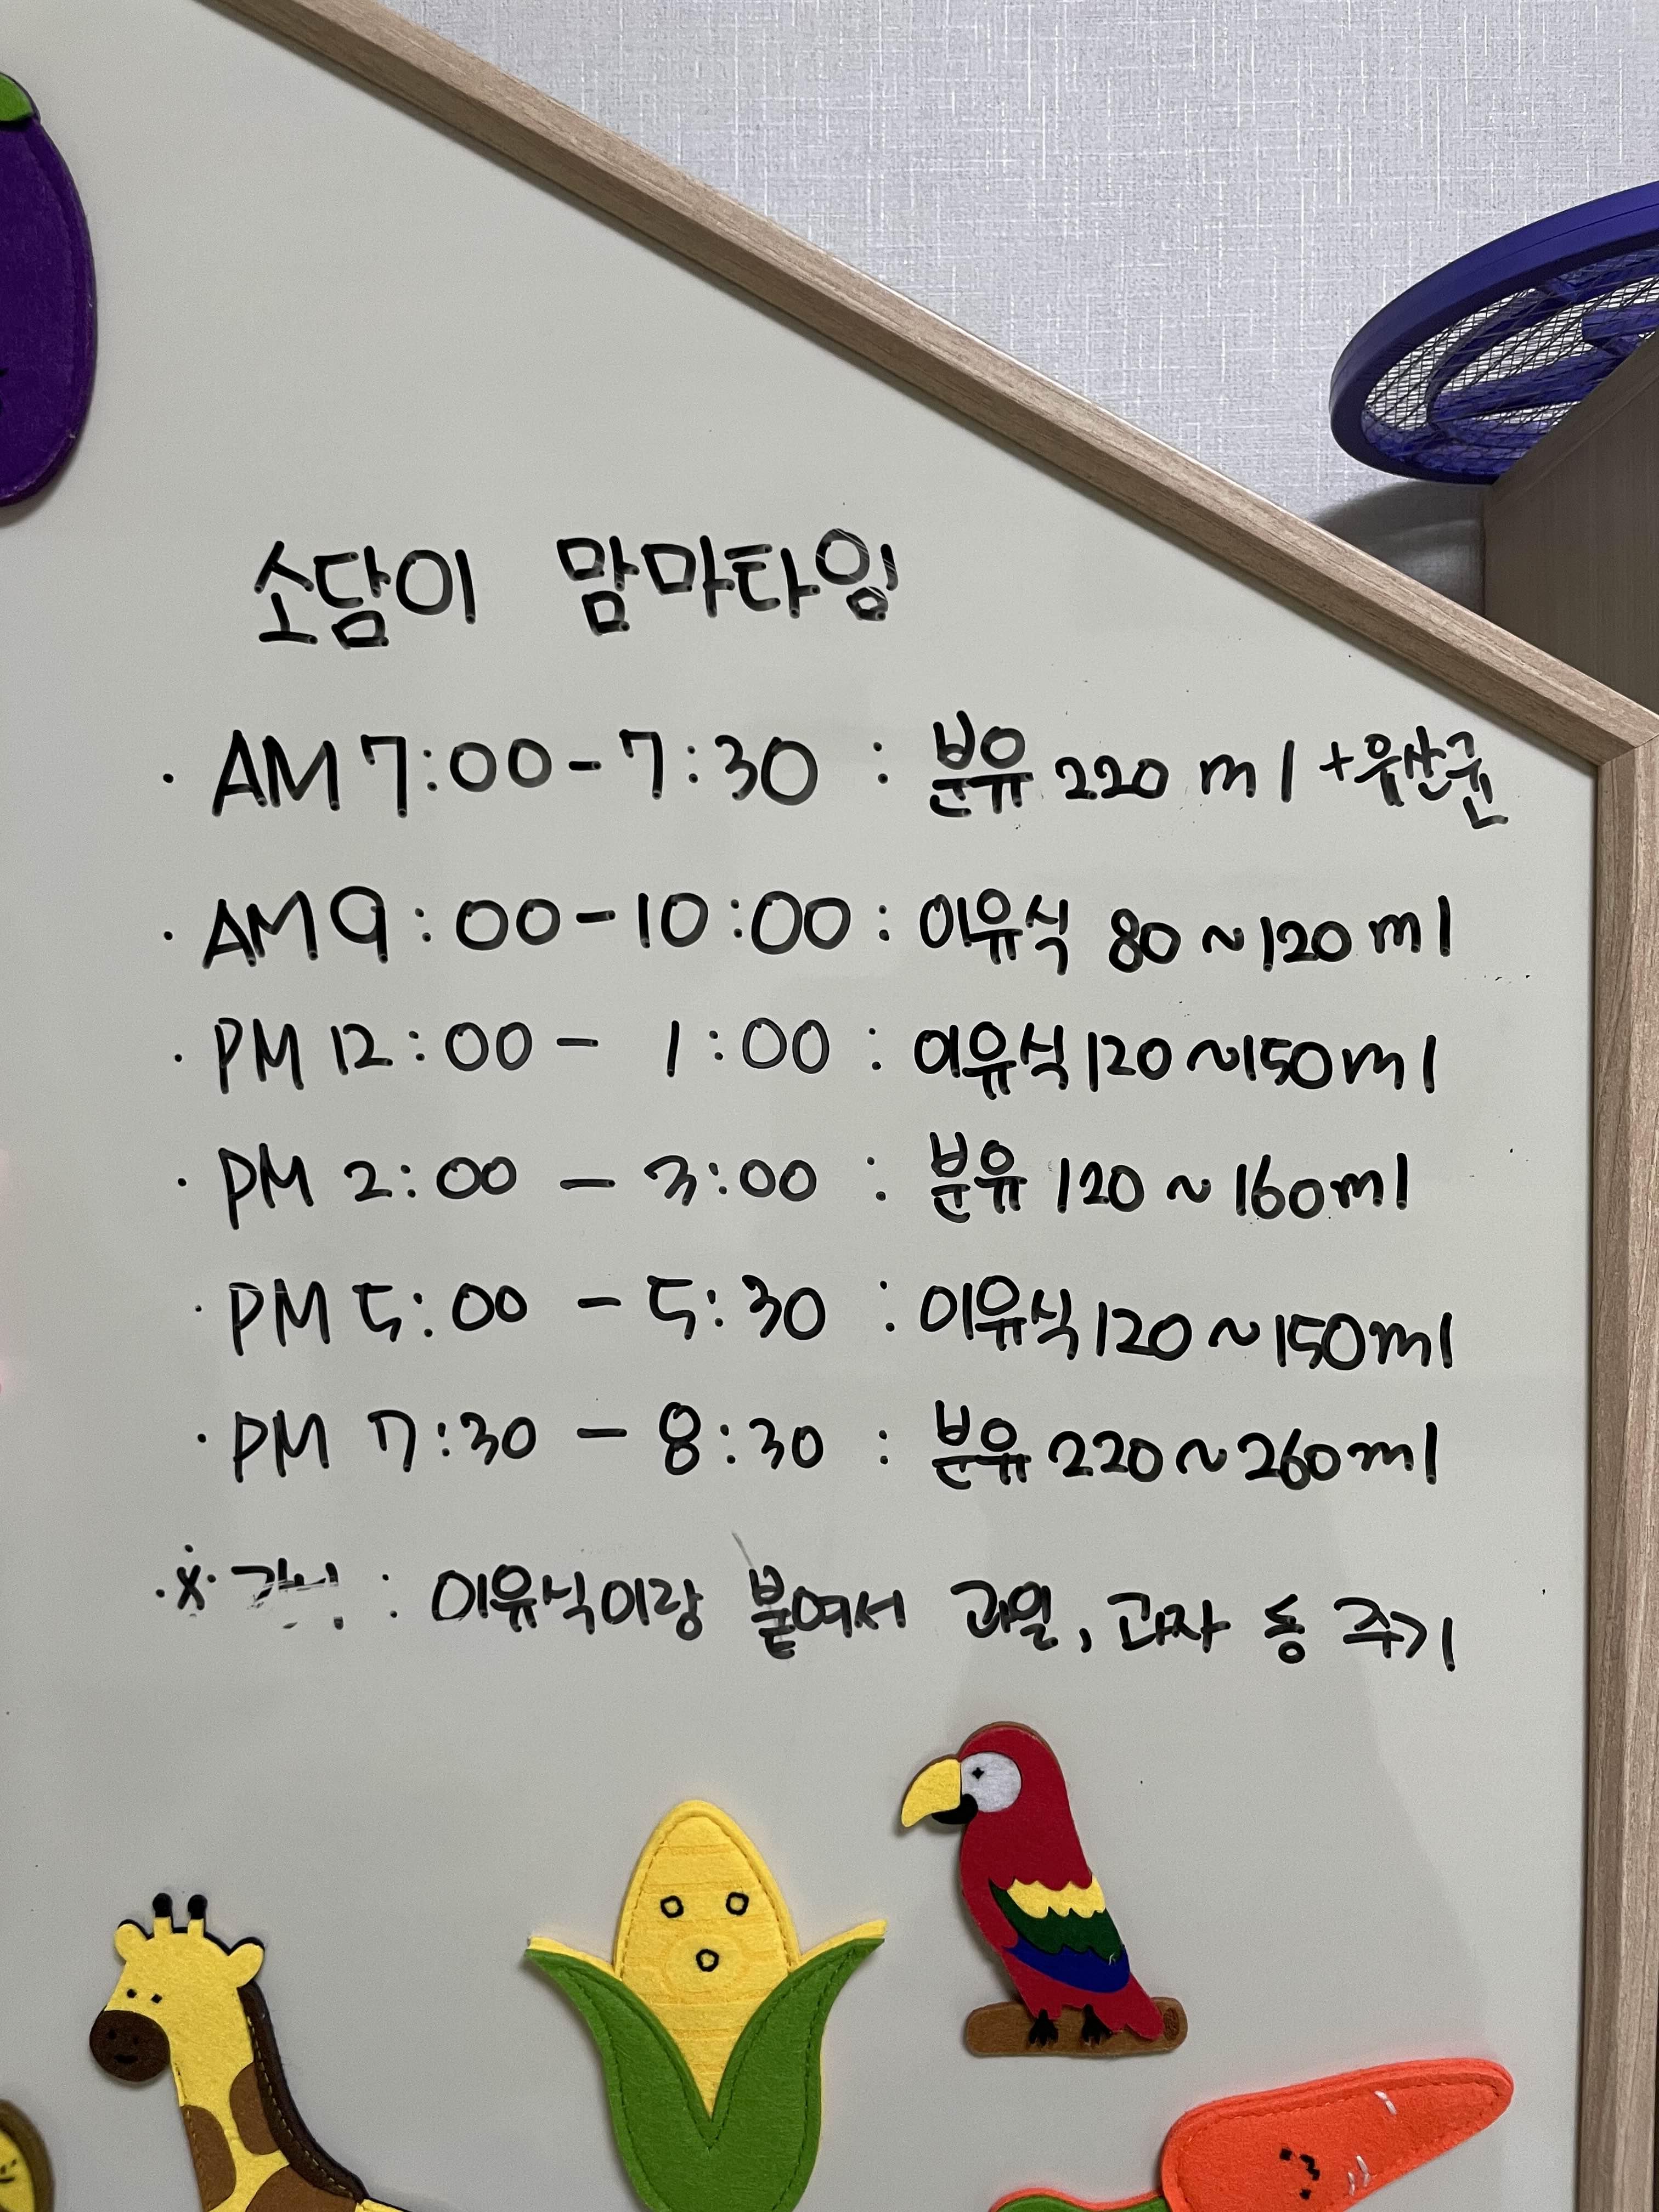 소담이 맘마타임
· AM 7:00-7:30 : 분유 220 ml +유산균
· AM 9:00-10:00 : 이유식 80~120ml
· PM 12:00 - 1:00 : 이유식 120~150ml
· PM 2:00 - 3:00 : 분유 120~160ml
· PM 5:00 - 5:30 : 이유식 120~150ml
· PM 7:30 - 8:30 : 분유 220~260ml
·※ : 이유식이랑 붙여서 과일, 과자 등 주기